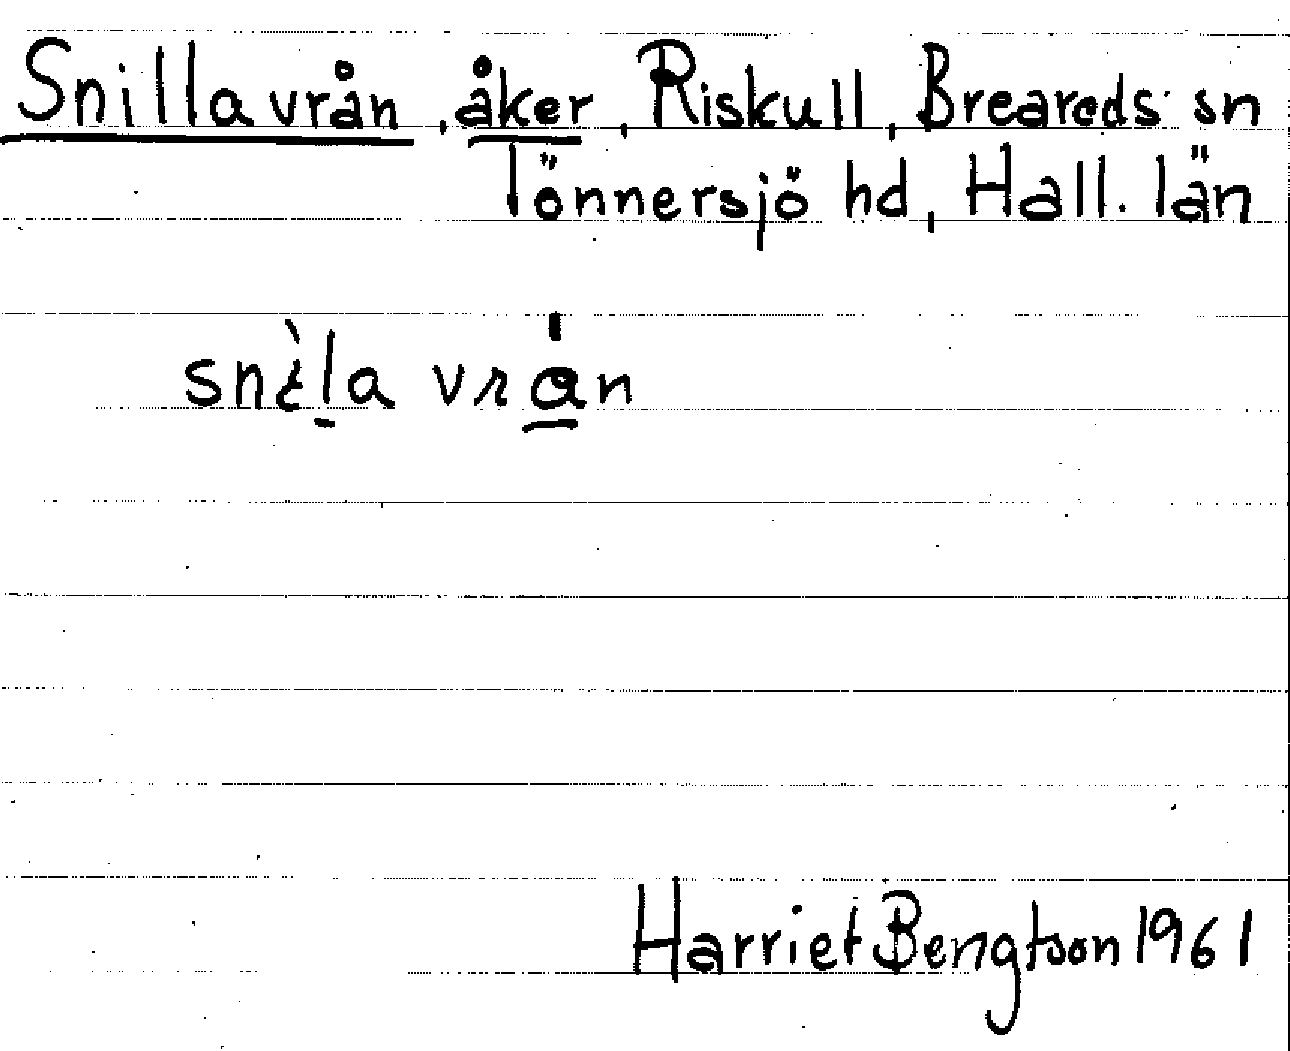 Snillavrån, åker, Riskull, Breareds sn
Tönnersjö hd, Hall. län
snìla vrån
Harriet Bengtson 1961